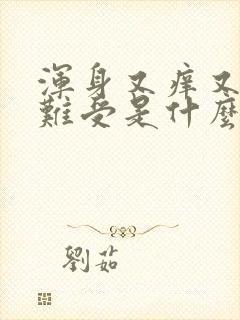 渾身又痒又
難受是什麼
劉茹